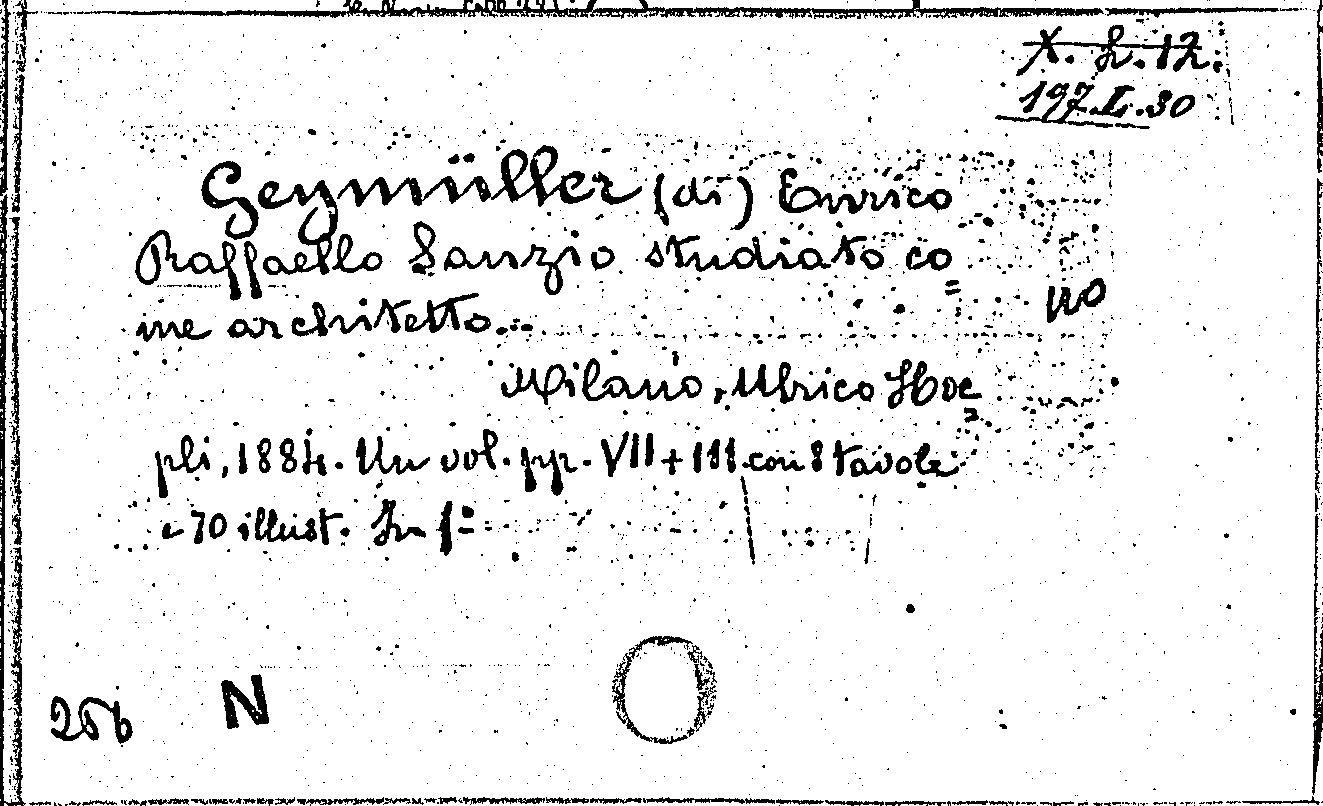 X. L. 12.
197.L.30
Geymüller (di) Enrico
Raffaello Sanzio studiato co=
me architetto.
no
Milano, Ulrico Hoe=
pli, 1884. Un vol. pp. VII + 111 con 8 tavole
e 70 illust. In fº
256 N